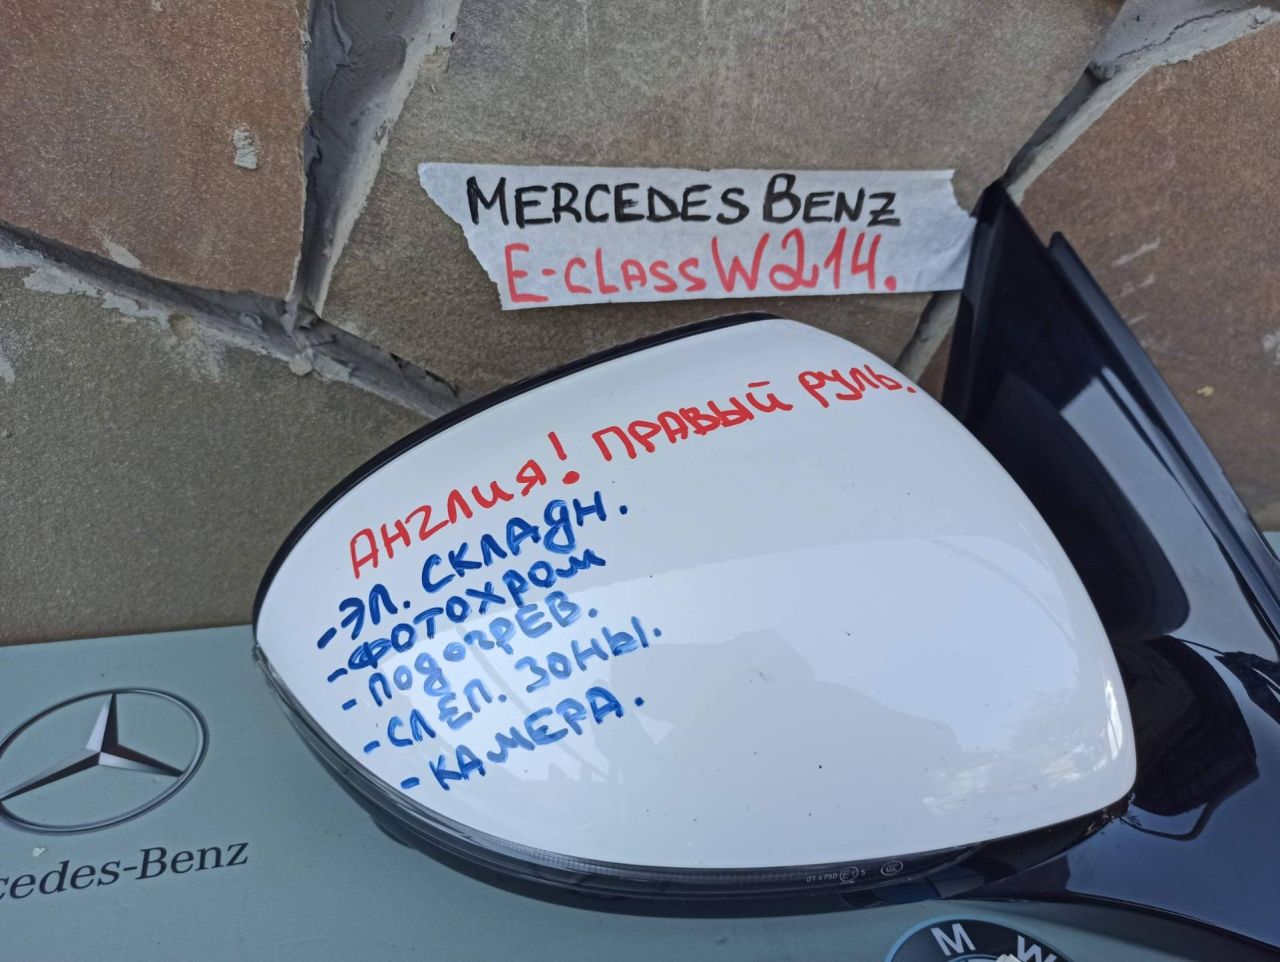 MERCEDES BENZ
E-CLASS W214.
АНГЛИЯ! ПРАВЫЙ РУЛЬ.
-ЭЛ. СКЛАДН.
-ФОТОХРОМ
-ПОДОГРЕВ.
-СЛЕП. ЗОНЫ.
-КАМЕРА.
cedes-Benz
014750 E1 S
CCC
M W